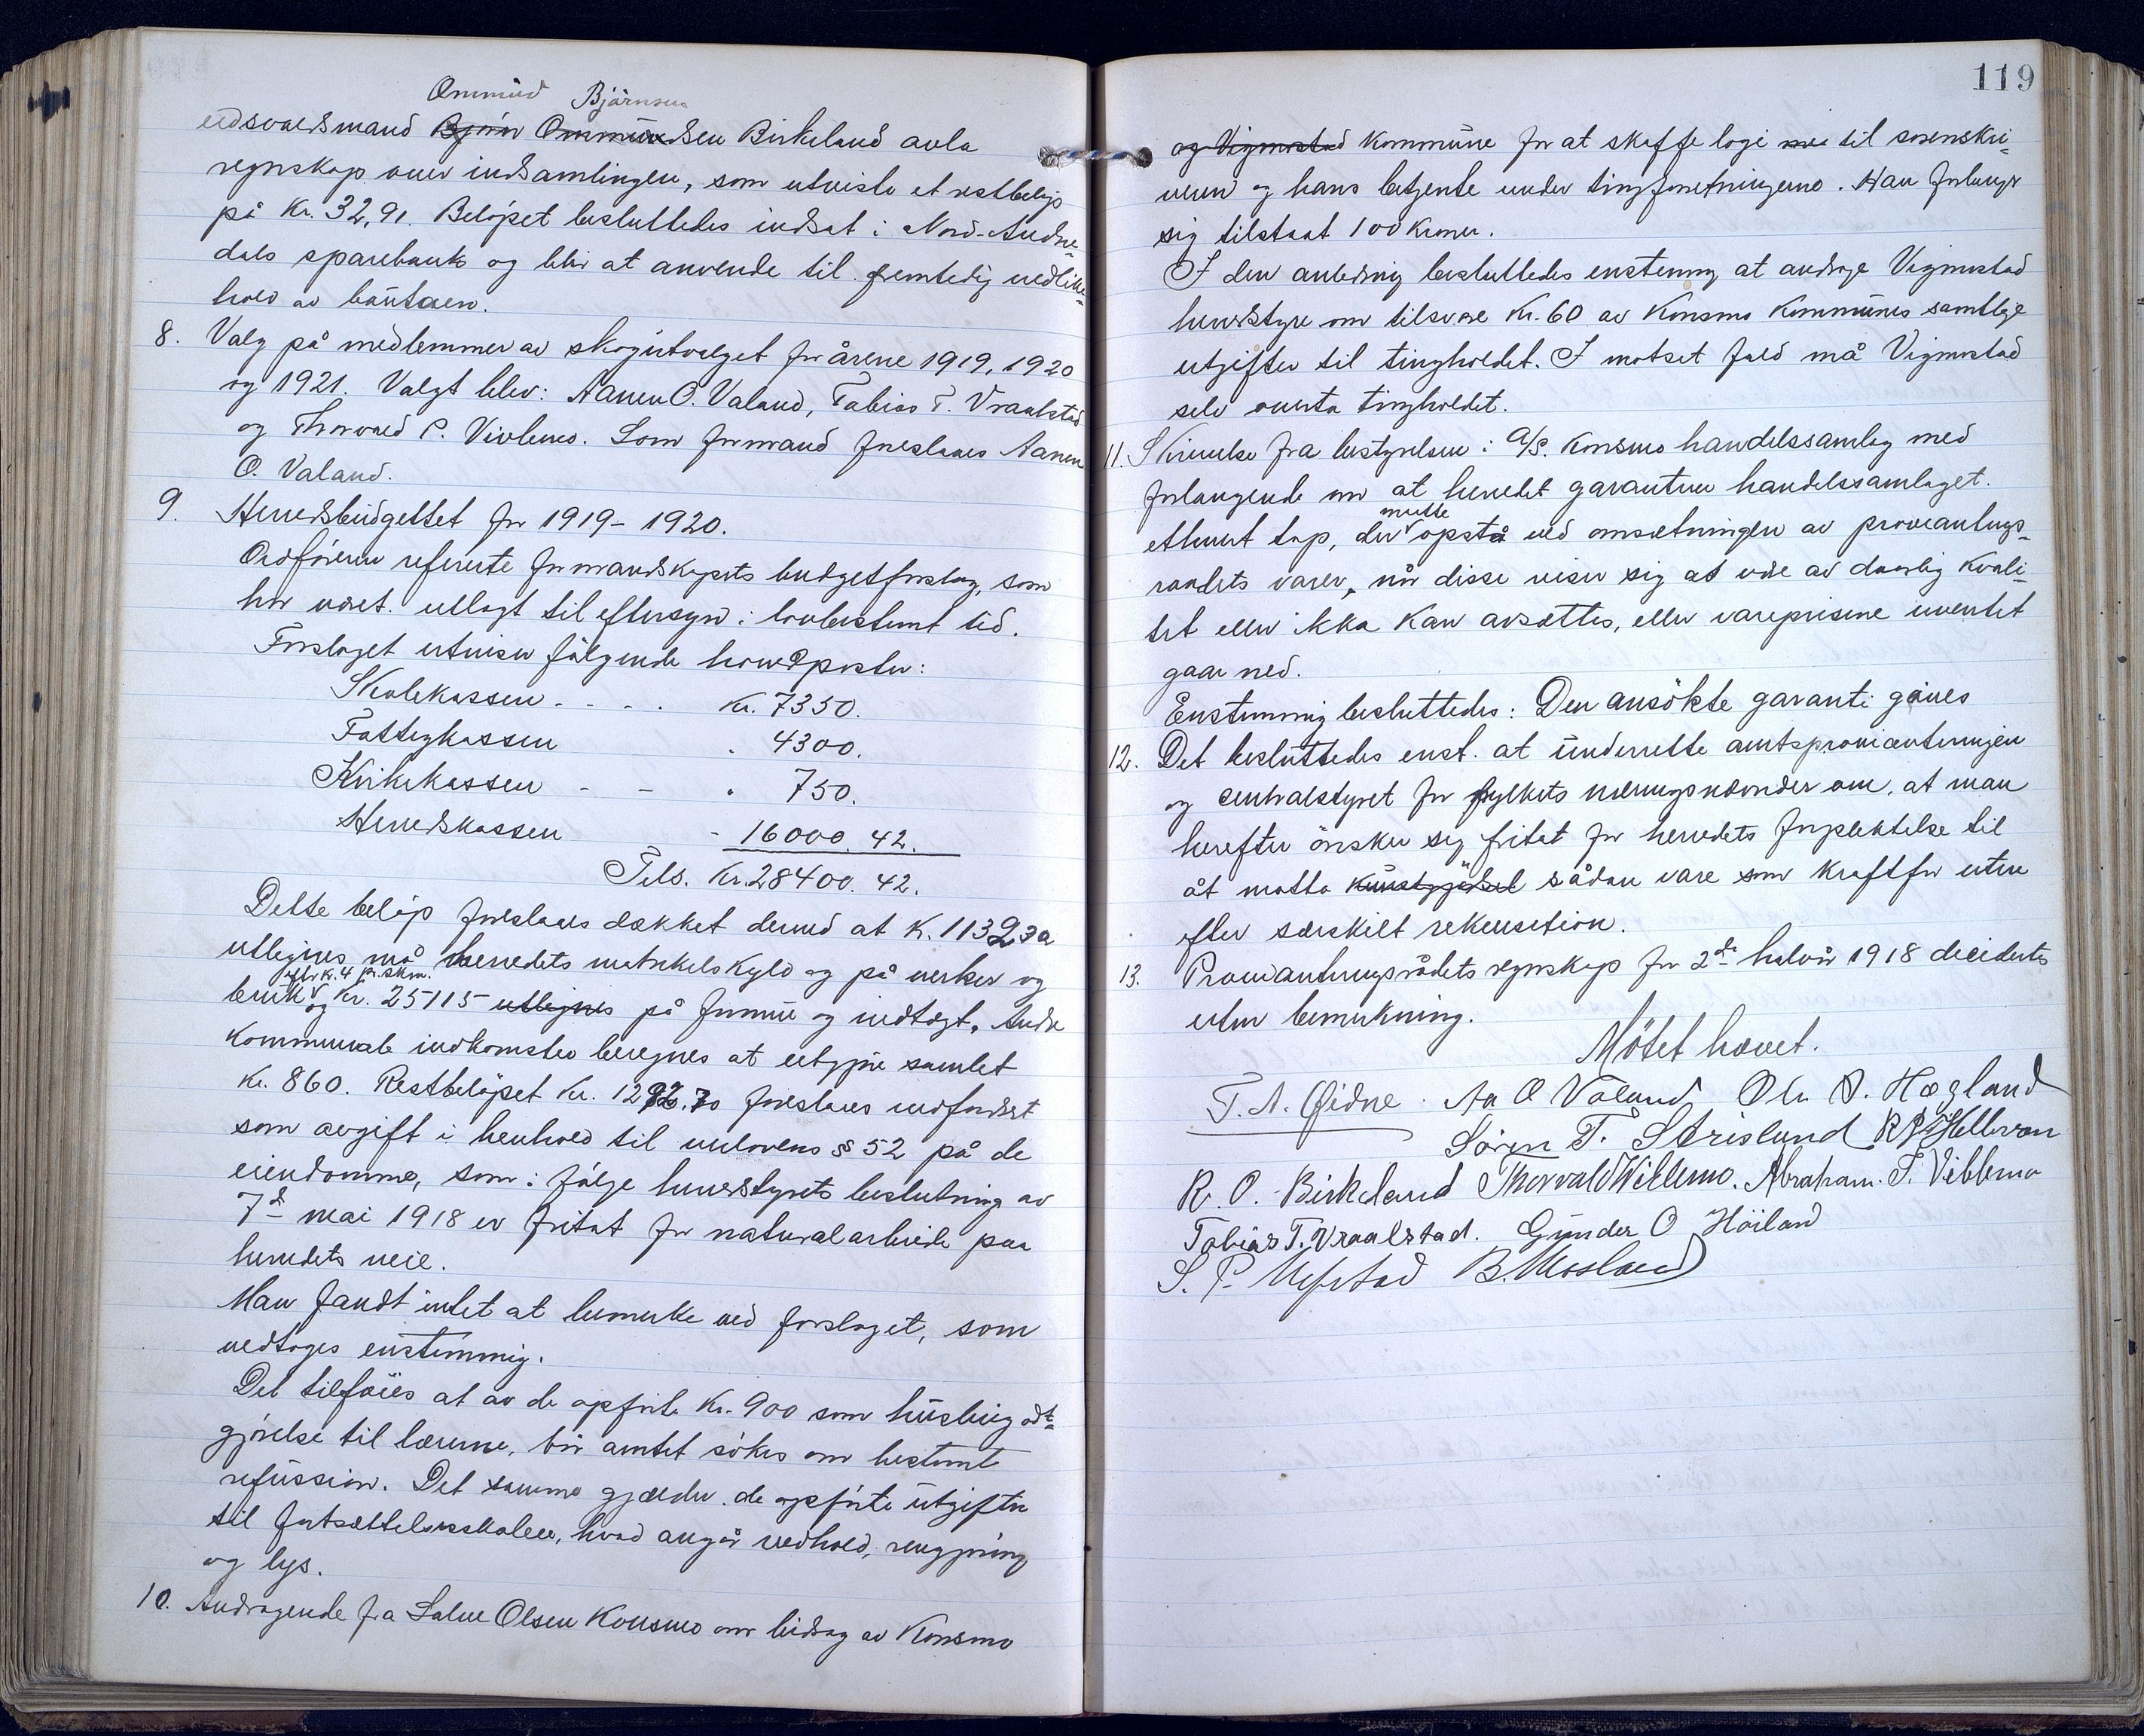 Ommund Björnsen
eidsvoldsmand Björn Ommundsen Birkeland avla
regnskap over indsamlingen, som utviste et restbeløp
på Kr. 32,91. Belöpet besluttedes indsat i Nord-Audne-
dals sparebank og blir at anvende til fremtidig vedlike-
hold av bautaen.
8. Valg på medlemmer av skogutvalget for årene 1919, 1920
og 1921. Valgt blev: Aanen O. Valand, Tobias T. Vraalstad
og Thorvald P. Vivlemo. Som formand foreslaaes Aanen
O. Valand.
9. Herredsbudgettet for 1919-1920.
Ordföreren refererte formandskapets budgetforslag, som
har været utlagt til eftersyn i lovbestemt tid.
Forslaget utviser fölgende hovedposter:
Skolekassen - - - . Kr. 7350.
Fattigkassen . 4300.
Kirkekassen - - . 750.
Herredskassen - 16000. 42.
Tils. Kr. 28400. 42.
Dette belöp foreslaaes dækket derved at Kr. 1132,72
utlignes på herredets matrikelskyld og på verker og
efter K. 4 pr. skm.
bruk og Kr. 25115 utlignes på formue og indtægt. Andre
Kommunale indkomster beregnes at utgjøre samlet
Kr. 860. Restbelöpet Kr. 1292.70 foreslaaes indfordret
som avgift i henhold til veilovens § 52 på de
eiendomme, som i fölge herredstyrets beslutning av
7de mai 1918 er fritat for naturalarbeide paa
herredets veie.
Man fandt intet at bemerke ved forslaget, som
vedtoges enstemmig.
Det tilföies at av de opförte Kr. 900 som husleiegodt-
gjörelse til lærerne, bör amtet sökes om bestemt
refussion. Det samme gjælder de opförte utgifter
til fortsættelsesskolen, hvad angår vedhold, rengjöring
og lys.
10. Andragende fra Salve Olsen Konsmo om bidrag av Konsmo
119
og Vigmostad Kommune for at skaffe logi til sorenskri-
veren og hans betjente under tingforretningerne. Han forlanger
sig tilstaat 100 Kroner.
I den anledning besluttedes enstemmig at andrage Vigmostad
herredstyre om tilsvare Kr. 60 av Konsmo Kommunes samtlige
utgifter til tingholdet. I motset fald må Vigmostad
selv overta tingholdet.
11. Skrivelse fra bestyrelsen i A/S. Konsmo handelssamlag med
forlangende om at herredet garanterer handelssamlaget.
ethvert tap, der måtte opstå ved omsætningen av provianterings-
raadets varer, når disse viser sig at være av daarlig kvali-
tet eller ikke kan avsættes, eller vareprisene uventet
gaar ned.
Enstemmig besluttedes: Den ansökte garanti gives
12. Det besluttedes enst. at underrette amtsprovianteringen
og centralstyret for fylkets næringsnævnder om, at man
herefter önsker sig fritat for herredets forpliktelse til
åt motta kunstgjödsel sådan vare som kraftfor uten
efter særskilt rekvisition.
13. Provianteringsrådets regnskap for 2de halvår 1918 decidertes
uten bemerkning.
Mötet hævet.
T. A. Øidne. Aa O Valand Ole S. Hægland
Sören T. Strisland
R. O. Birkeland Thorvald Willemo. Abraham. T. Viblemo
Tobias T. Vraalstad. Gunder O Höiland
S. P. Ugestad B. Mosland